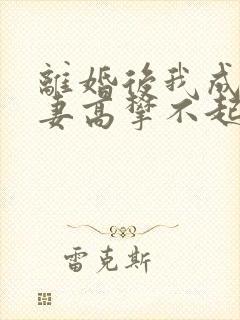 離婚後我成
妻高攀不起
雷克斯